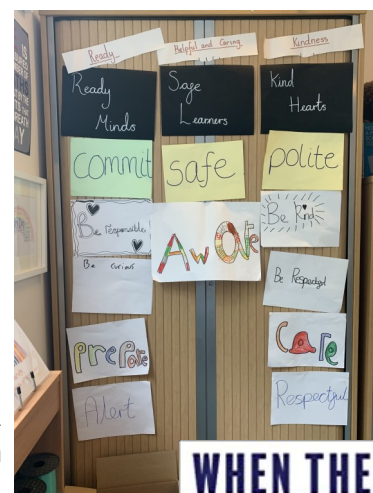 Ready
Helpful and Caring
Kindness
Ready
Minds
Safe
Learners
Kind
Hearts
commit
safe
polite
Be responsible
Be Kind
Aware
Be curious
Be Respectful
Prepare
Care
Alert
Respectful
WHEN THE